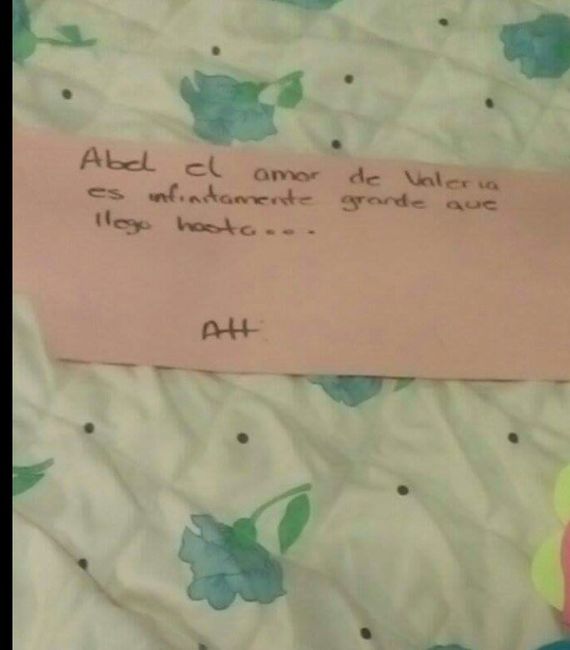 Abel el amor de Valeria
es infinitamente grande que
llego hasta....
Att: